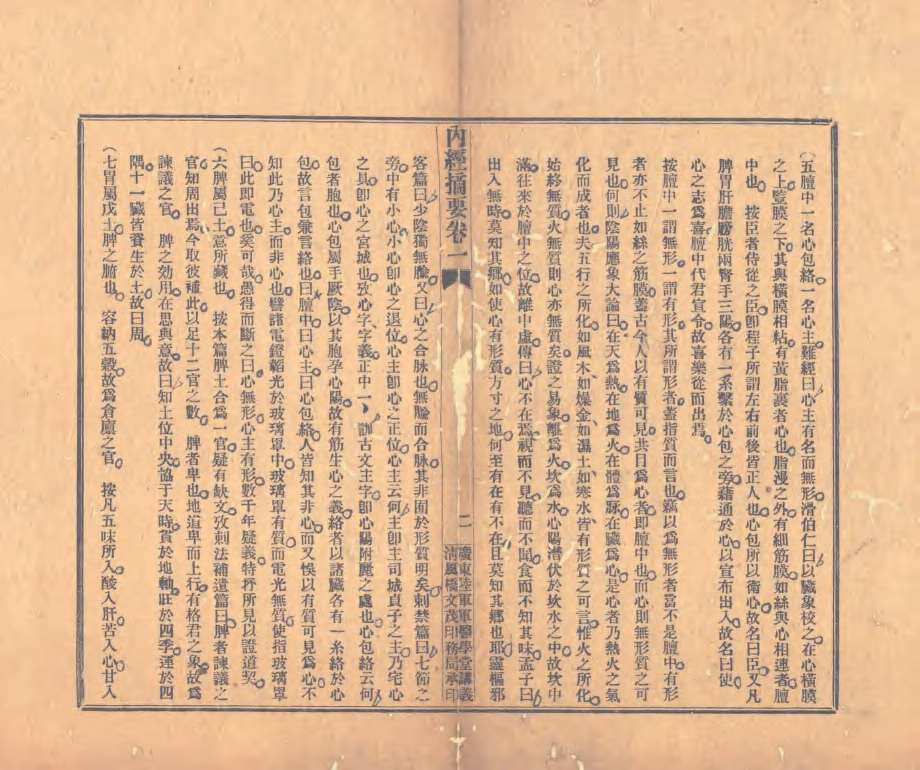 （五膻中一名心包絡一名心主難經曰心主有名而無形滑伯仁曰以臟象校之在心橫膜
之上豎膜之下其與橫膜相粘有黃脂裹者心也脂漫之外有細筋膜如絲與心相連者膻
中也　按臣者侍從之臣卽程子所謂左右前後皆正人也心包所以衛心故名曰臣又凡
脾胃肝膽膀胱兩腎手三陽各有一系繫於心包之旁藉通於心以宣布出入故名曰使
心之志爲喜膻中代君宣令故喜樂從而出焉
按膻中一謂無形一謂有形其所謂形者蓋指質而言也竊以爲無形者當不是膻中有形
者亦不止如絲之筋膜蓋古今人以有質可見共目爲心者卽膻中也而心則無形質之可
見也何則陰陽應象大論曰在天爲熱在地爲火在體爲脈在臟爲心是心者乃熱火之氣
化而成者也夫五行之所化如風木如燥金如濕土如寒水皆有形質之可言惟火之所化
始終無質火無質則心亦無質矣證之易象離爲火坎爲水心陽潛伏於坎水之中故坎中
滿往來於膻中之位故離中虛傳曰心不在焉視而不見聽而不聞食而不知其味孟子曰
出入無時莫知其鄉如使心有形質方寸之地何至有在有不在且莫知其鄉也耶靈樞邪
內經摘要卷一
二
廣東陸軍軍醫學堂講義
清風橋文茂印務局承印
客篇曰少陰獨無腧又曰心之合脉也無腧而合脉其非囿於形質明矣刺禁篇曰七節之
旁中有小心小心卽心之退位心主卽心之正位心主云何主卽主司城貞子之主乃宅心
之具卽心之宮城也攷心字字義正中一丶訓古文主字卽心陽附麗之處也心包絡云何
包者胞也心包屬手厥陰以其胞孕心陽故有筋生心之義絡者以諸臟各有一系絡於心
包故言包兼言絡也曰膻中曰心主曰心包絡人皆知其非心而又悞以有質可見爲心不
知此乃心主而非心也譬諸電鐙韜光於玻璃罩中玻璃罩有質而電光無質使指玻璃罩
曰此卽電也奚可哉愚得而斷之曰心無形心主有形數千年疑義特抒所見以證道契
（六脾屬己土意所藏也　按本篇脾土合爲一官疑有缺文攷刺法補遺篇曰脾者諫議之
官知周出焉今取彼補此以足十二官之數　脾者卑也地道卑而上行有格君之象故爲
諫議之官　脾之効用在思與意故曰知土位中央協于天時質於地軸旺於四季運於四
隅十一臟皆資生於土故曰周
（七胃屬戊土脾之腑也　容納五穀故爲倉廩之官　按凡五味所入酸入肝苦入心甘入